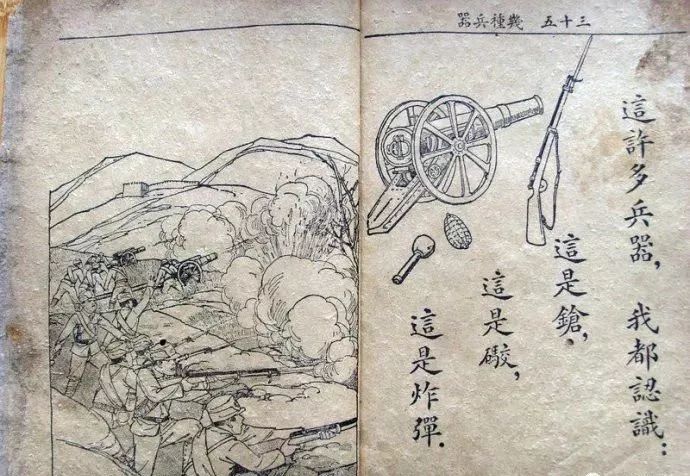 三十五　幾種兵器
這許多兵器，我都認識：
這是鎗，
這是礮，
這是炸彈．